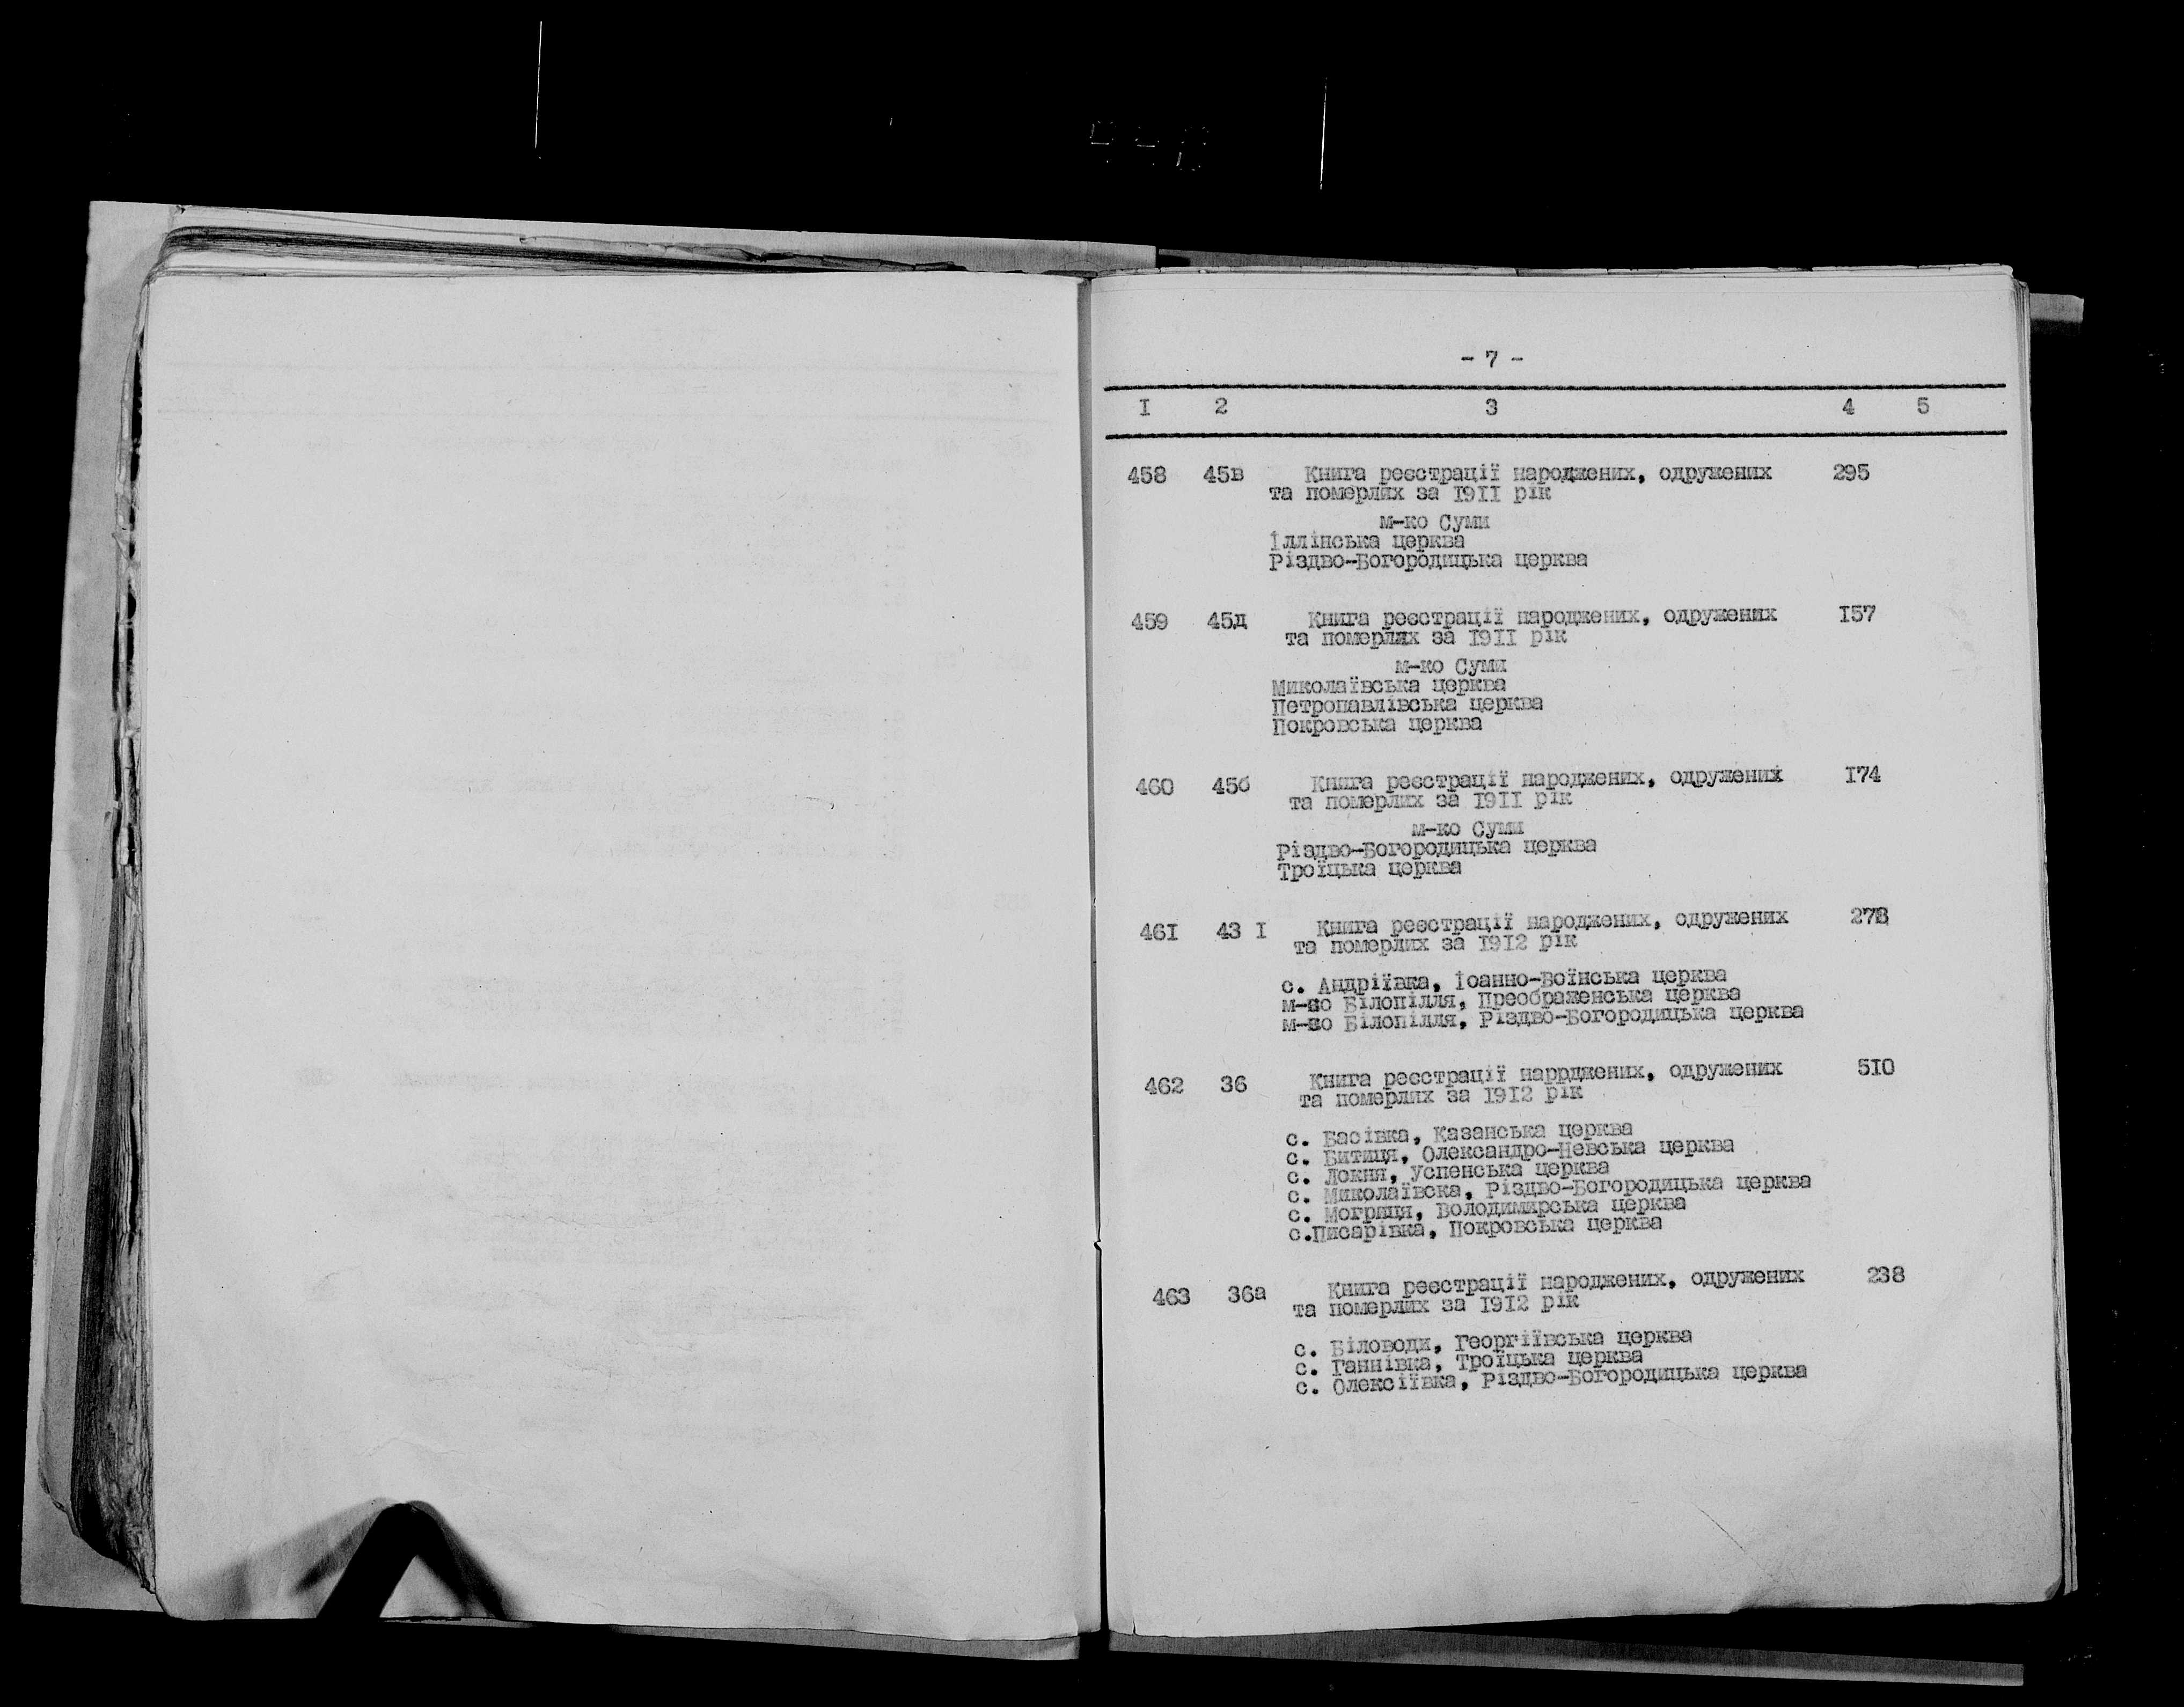 - 7 -
I 2 3 4 5
458 45в Книга реєстрації народжених, одружених 295
та померлих за 1911 рік
м-ко Суми
Іллінська церква
Різдво-Богородицька церква
459 45д Книга реєстрації народжених, одружених 157
та померлих за 1911 рік
м-ко Суми
Миколаївська церква
Петропавлівська церква
Покровська церква
460 45б Книга реєстрації народжених, одружених 174
та померлих за 1911 рік
м-ко Суми
Різдво-Богородицька церква
Троїцька церква
461 43 I Книга реєстрації народжених, одружених 278
та померлих за 1912 рік
с. Андріївка, Іоанно-Воїнська церква
м-ко Білопілля, Преображенська церква
м-ко Білопілля, Різдво-Богородицька церква
462 36 Книга реєстрації наррджених, одружених 510
та померлих за 1912 рік
с. Басівка, Казанська церква
с. Битиця, Олександро-Невська церква
с. Локня, Успенська церква
с. Миколаївска, Різдво-Богородицька церква
с. Могриця, Володимирська церква
с.Писарівка, Покровська церква
463 36а Книга реєстрації народжених, одружених 238
та померлих за 1912 рік
с. Біловоди, Георгіївська церква
с. Ганнівка, Троїцька церква
с. Олексіївка, Різдво-Богородицька церква